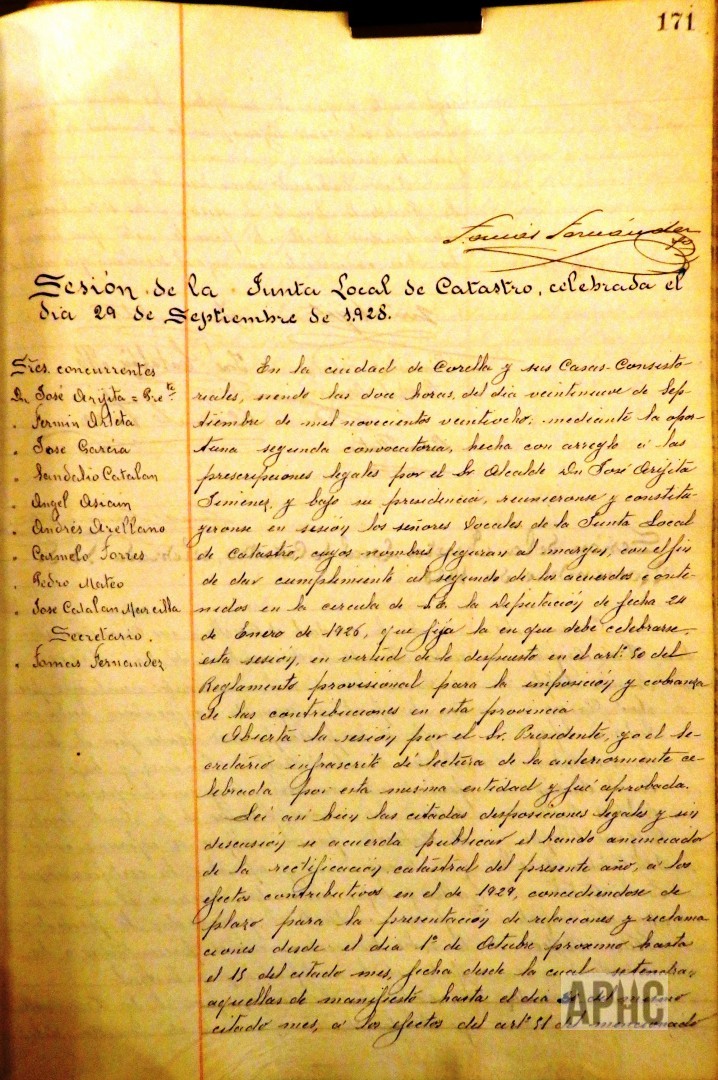 171
Tomás Fernández
Sesión de la Junta Local de Catastro, celebrada el
día 29 de Septiembre de 1928.
Sres. concurrentes
Dn José Arijita = Pre.te
" Fermin Arleta
" Jose García
" Sandalio Catalan
" Angel Asiain
" Andrés Arellano
" Carmelo Torres
" Pedro Mateo
" Jose Catalan Marcilla
Secretario.
" Tomas Fernandez
En la ciudad de Corella y sus Casas-Consisto-
riales, siendo las doce horas, del día veintenueve de Sep-
tiembre de mil novecientos veintiocho; mediante la opor-
tuna segunda convocatoria, hecha con arreglo á las
prescripciones legales por el Sr Alcalde Dn José Arijita
Jimenez, y bajo su presidencia, reunieronse y constitu-
yeronse en sesión los señores Vocales de la Junta Local
de Catastro, cuyos nombres figuran al margen, con el fin
de dar cumplimiento al segundo de los acuerdos conte-
nidos en la circula de la Deputación de fecha 24
de Enero de 1926, que fija la en que debe celebrarse
esta sesión, en virtud de lo despuesto en el artº 50 del
Reglamento provisional para la imposición y cobranza
de las contribuciones en esta provincia
Abierta la sesión por el Sr. Presidente, yo el Se-
cretario infrascrito dí lectura de la anteriormente ce-
lebrada por esta misma entidad y fué aprobada.
Leí asi bien las citadas desposiciones legales y sin
discusión se acuerda publicar el bando anunciador
de la rectificación catastral del presente año, a los
efectos contributivos en el de 1929, concediendose de
plazo para la presentación de relaciones y reclama
ciones desde el dia 1º de Octubre proximo hasta
el 15 del citado mes, fecha desde la cual se tendran
aquellas de manifiesto hasta el dia del mismo
citado mes, a los efectos del artº 51 del mencionado
APHC